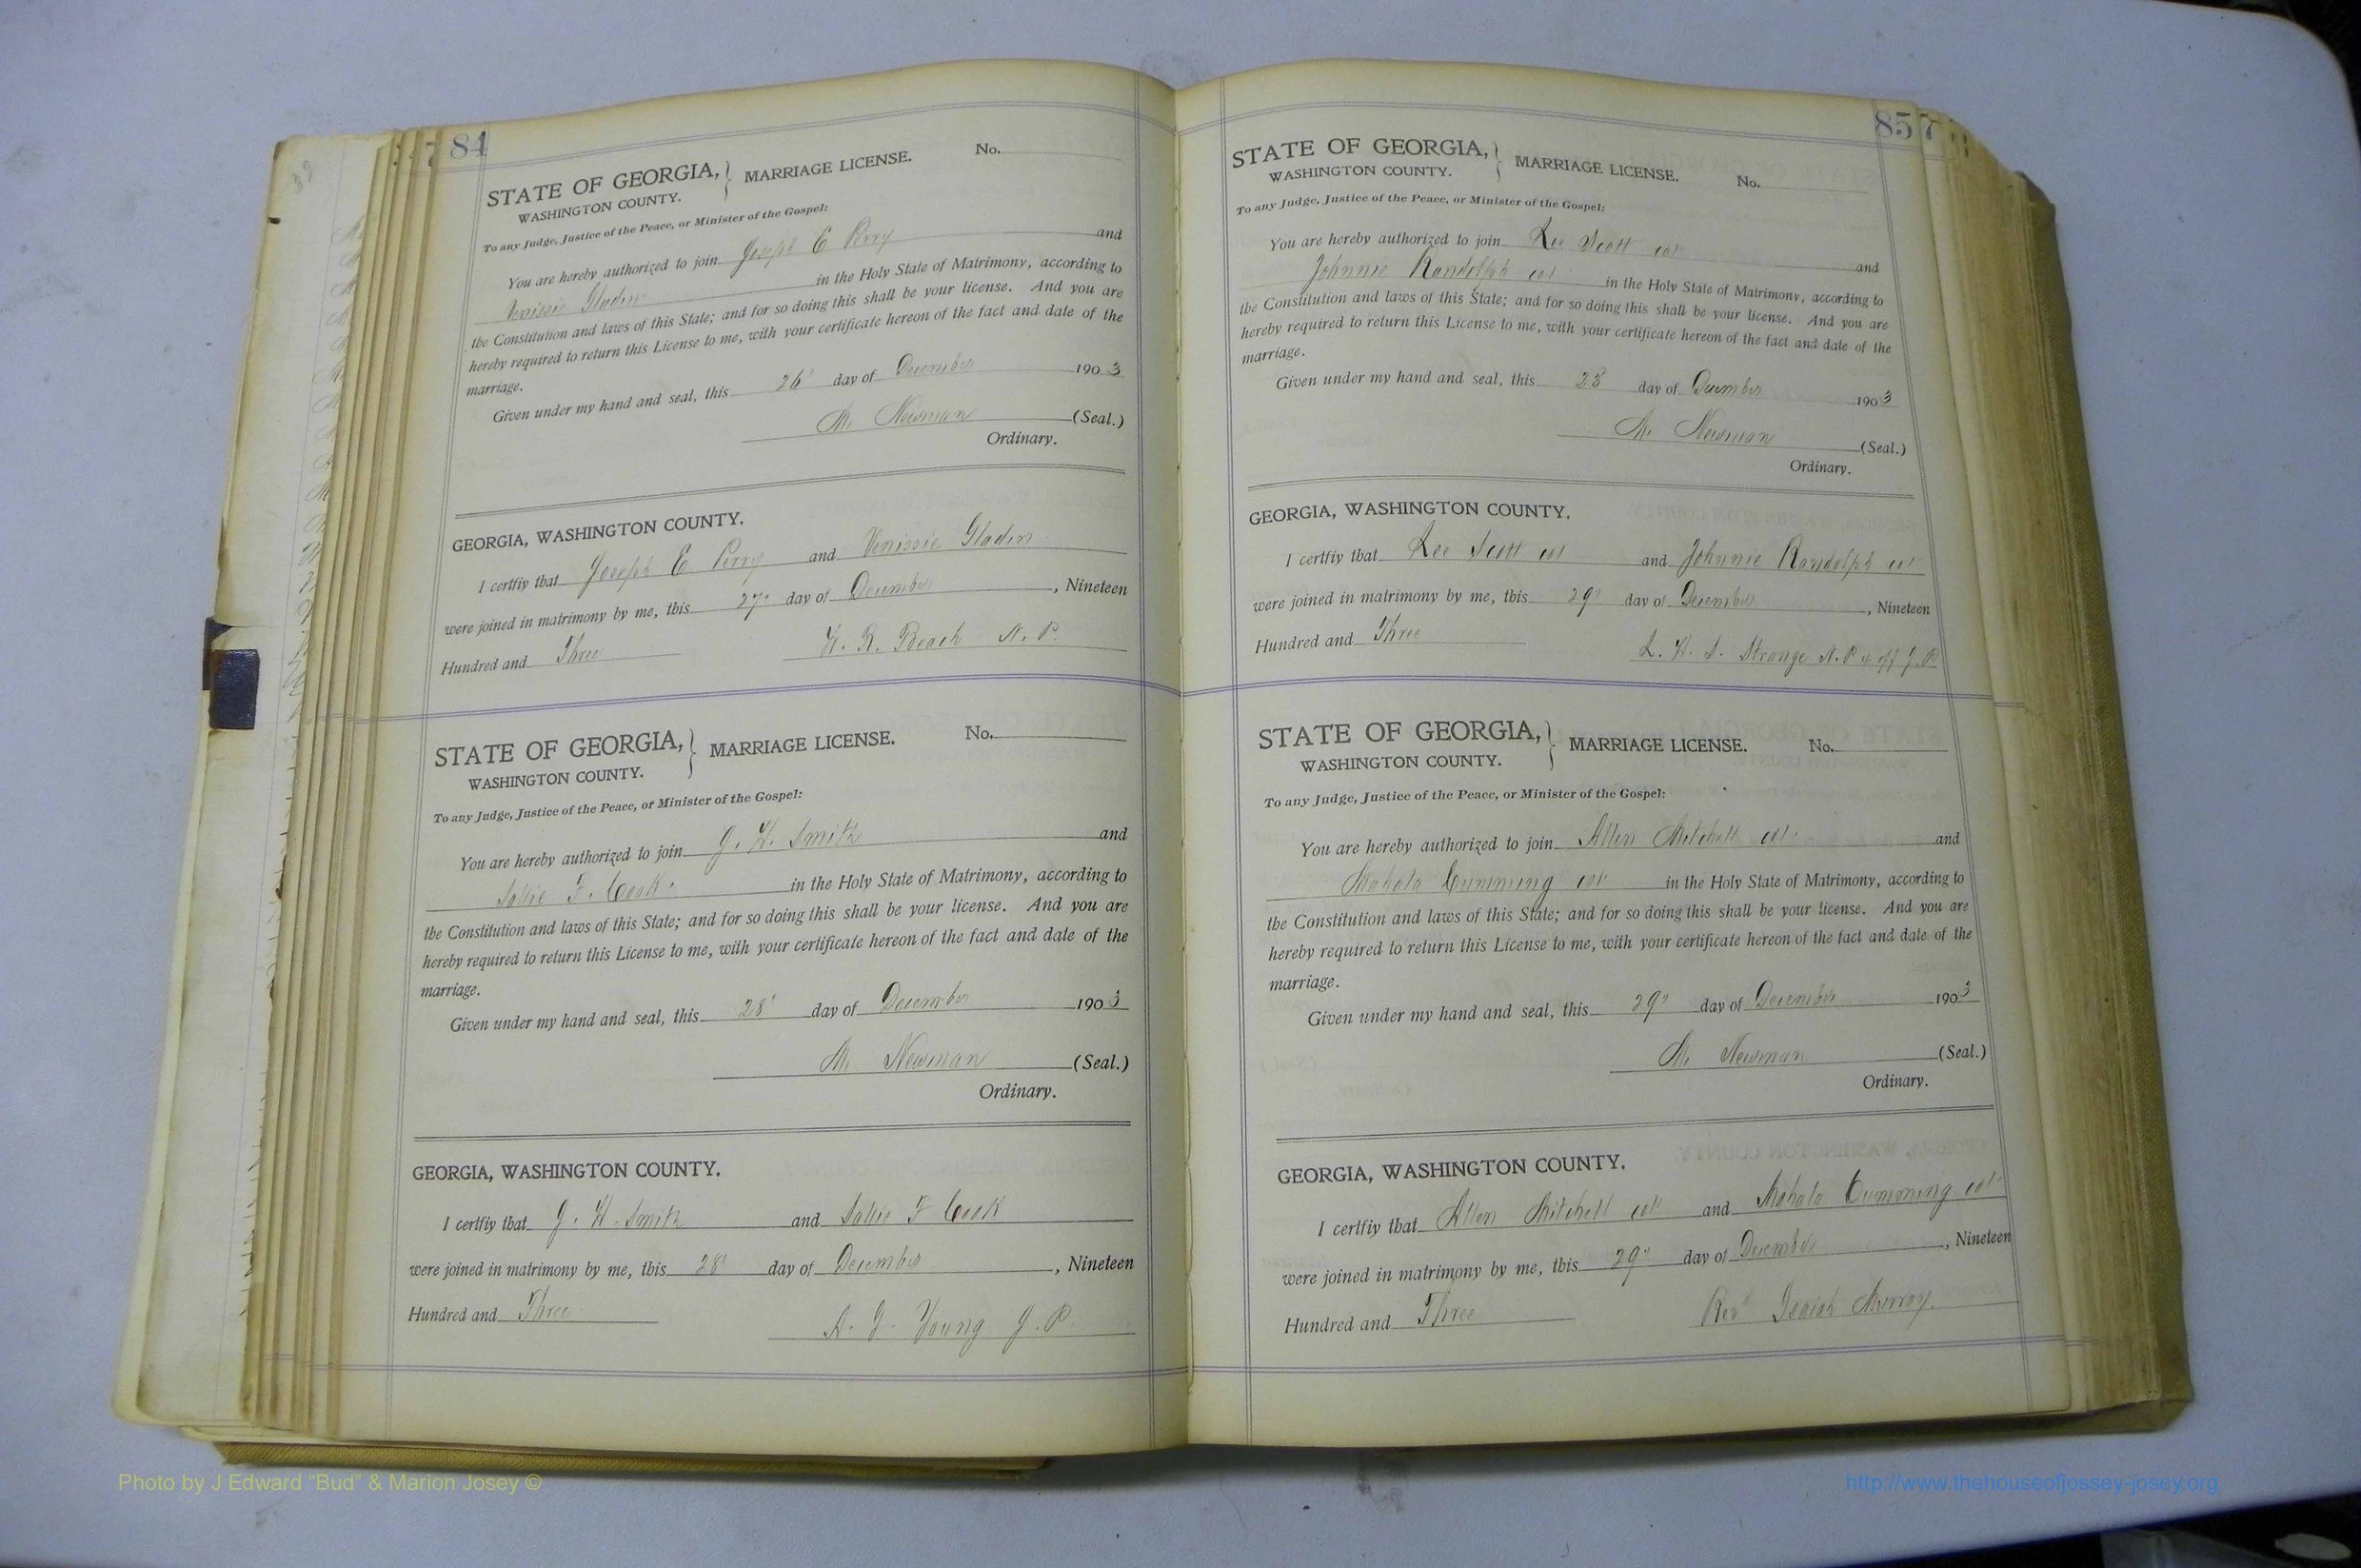 84
STATE OF GEORGIA, } MARRIAGE LICENSE. No.
WASHINGTON COUNTY.
To any Judge, Justice of the Peace, or Minister of the Gospel:
You are hereby authorized to join Joseph E Perry and
Venissie Gladin in the Holy State of Matrimony, according to
the Constitution and laws of this State; and for so doing this shall be your license. And you are
hereby required to return this License to me, with your certificate hereon of the fact and date of the
marriage.
Given under my hand and seal, this 26' day of December 1903
M. Newman (Seal.)
Ordinary.
GEORGIA, WASHINGTON COUNTY.
I certfiy that Joseph E Perry and Venissie Gladin
were joined in matrimony by me, this 27' day of December, Nineteen
Hundred and Three
R. Beach N. P.
STATE OF GEORGIA, } MARRIAGE LICENSE. No.
WASHINGTON COUNTY.
To any Judge, Justice of the Peace, or Minister of the Gospel:
You are hereby authorized to join J. H. Smith and
Sallie F. Cook in the Holy State of Matrimony, according to
the Constitution and laws of this State; and for so doing this shall be your license. And you are
hereby required to return this License to me, with your certificate hereon of the fact and date of the
marriage.
Given under my hand and seal, this 28' day of December 1903
M. Newman (Seal.)
Ordinary.
GEORGIA, WASHINGTON COUNTY.
I certfiy that J. H. Smith and Sallie F Cook
were joined in matrimony by me, this 28' day of December, Nineteen
Hundred and Three
Young J. P.
85
STATE OF GEORGIA, } MARRIAGE LICENSE. No.
WASHINGTON COUNTY.
To any Judge, Justice of the Peace, or Minister of the Gospel:
You are hereby authorized to join Lee Scott col and
Johnnie Randolph col in the Holy State of Matrimony, according to
the Constitution and laws of this State; and for so doing this shall be your license. And you are
hereby required to return this License to me, with your certificate hereon of the fact and date of the
marriage.
Given under my hand and seal, this day of December 1903
M. Newman (Seal.)
Ordinary.
GEORGIA, WASHINGTON COUNTY.
I certfiy that Lee Scott col and Johnnie Randolph col
were joined in matrimony by me, this 29' day of December, Nineteen
Hundred and Three
L. H. S. Strange N. P. J. P.
STATE OF GEORGIA, } MARRIAGE LICENSE. No.
WASHINGTON COUNTY.
To any Judge, Justice of the Peace, or Minister of the Gospel:
You are hereby authorized to join Allen Mitchell col and
Mahala Cumming col in the Holy State of Matrimony, according to
the Constitution and laws of this State; and for so doing this shall be your license. And you are
hereby required to return this License to me, with your certificate hereon of the fact and date of the
marriage.
Given under my hand and seal, this 29' day of December 1903
M. Newman (Seal.)
Ordinary.
GEORGIA, WASHINGTON COUNTY.
I certfiy that Allen Mitchell col and Mahala Cumming col
were joined in matrimony by me, this 29' day of December, Nineteen
Hundred and Three
Rev Isaiah Murray
Photo by J Edward “Bud” & Marion Josey ©
http://www.thehouseofjossey-josey.org